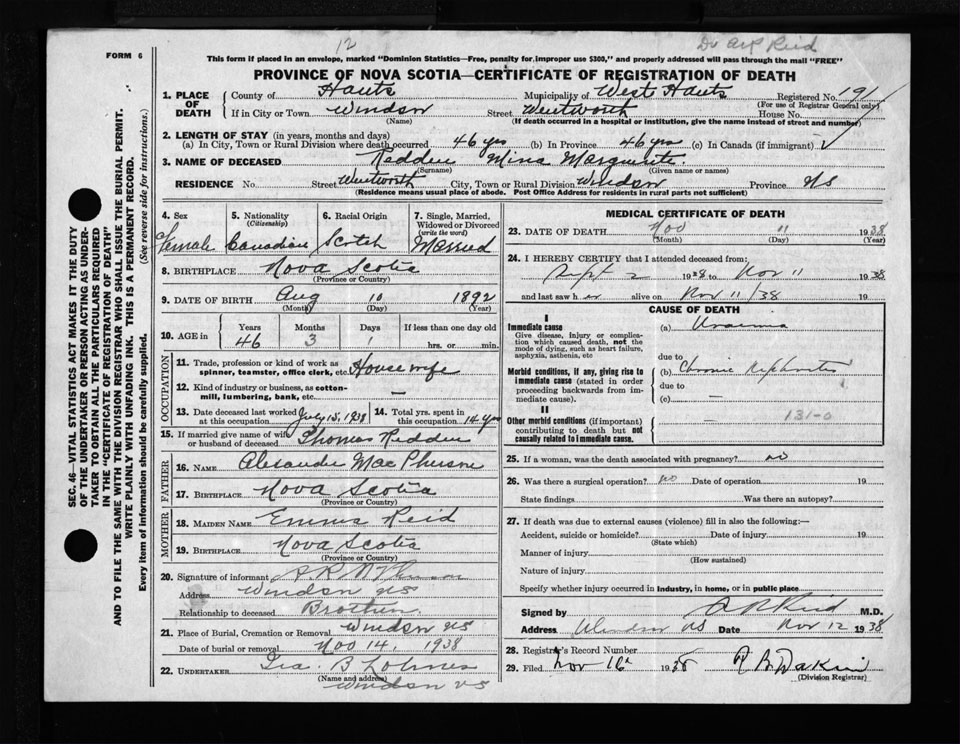 FORM 6
12
Dr A R Reid
This form if placed in an envelope, marked "Dominion Statistics—Free, penalty for improper use $300," and properly addressed will pass through the mail "FREE"
PROVINCE OF NOVA SCOTIA—CERTIFICATE OF REGISTRATION OF DEATH
1. PLACE OF DEATH { County of Hants Municipality of West Hants Registered No. 191
(For use of Registrar General only)
If in City or Town Windsor Street Wentworth House No.
(Name) (If death occurred in a hospital or institution, give the name instead of street and number)
2. LENGTH OF STAY (in years, months and days)
(a) In City, Town or Rural Division where death occurred 46 yrs (b) In Province 46 yrs (c) In Canada (if immigrant)
3. NAME OF DECEASED Redden Mina Marguerite
(Surname) (Given name or names)
RESIDENCE No. Street Wentworth City, Town or Rural Division Windsor Province NS
(Residence means usual place of abode. Post Office Address for residents in rural parts not sufficient)
4. Sex Female
5. Nationality (Citizenship) Canadian
6. Racial Origin Scotch
7. Single, Married, Widowed or Divorced (write the word) Married
8. BIRTHPLACE Nova Scotia
(Province or Country)
9. DATE OF BIRTH Aug 10 1892
(Month) (Day) (Year)
10. AGE in Years Months Days If less than one day old
46 3 1 hrs. or min.
OCCUPATION
11. Trade, profession or kind of work as spinner, teamster, office clerk, etc. Housewife
12. Kind of industry or business, as cotton-mill, lumbering, bank, etc. —
13. Date deceased last worked at this occupation July 15, 1938
14. Total yrs. spent in this occupation 14 yrs
15. If married give name of wife or husband of deceased Thomas Redden
FATHER
16. NAME Alexander MacPherson
17. BIRTHPLACE Nova Scotia
(Province or Country)
MOTHER
18. MAIDEN NAME Emma Reid
19. BIRTHPLACE Nova Scotia
(Province or Country)
20. Signature of informant
Address Windsor NS
Relationship to deceased Brother
21. Place of Burial, Cremation or Removal Windsor NS
Date of burial or removal Nov 14. 1938
22. UNDERTAKER Geo. B Lohnes
(Name and address)
Windsor NS
MEDICAL CERTIFICATE OF DEATH
23. DATE OF DEATH Nov 11 1938
(Month) (Day) (Year)
24. I HEREBY CERTIFY that I attended deceased from:
Sept 2 1928 to Nov 11 1938
and last saw h er alive on Nov 11/38 19
CAUSE OF DEATH
I
Immediate cause (a) Uraemia
Give disease, injury or complication which caused death, not the mode of dying, such as heart failure, asphyxia, asthenia, etc
due to
Morbid conditions, if any, giving rise to immediate cause (stated in order proceeding backwards from immediate cause).
(b) Chronic Nephritis
due to
(c) —
II
Other morbid conditions (if important) contributing to death but not causally related to immediate cause.
131-0
25. If a woman, was the death associated with pregnancy? no
26. Was there a surgical operation? no Date of operation 19
State findings Was there an autopsy?
27. If death was due to external causes (violence) fill in also the following:—
Accident, suicide or homicide? Date of injury 19
(State which)
Manner of injury
(How sustained)
Nature of injury
Specify whether injury occurred in industry, in home, or in public place
Signed by A R Reid M.D.
Address Windsor NS Date Nov 12 1938
28. Registrar's Record Number
29. Filed Nov 16 1938
(Division Registrar)
SEC. 46—VITAL STATISTICS ACT MAKES IT THE DUTY
OF THE UNDERTAKER OR PERSON ACTING AS UNDER-
TAKER TO OBTAIN ALL THE PARTICULARS REQUIRED
IN THE "CERTIFICATE OF REGISTRATION OF DEATH"
AND TO FILE THE SAME WITH THE DIVISION REGISTRAR WHO SHALL ISSUE THE BURIAL PERMIT.
WRITE PLAINLY WITH UNFADING INK. THIS IS A PERMANENT RECORD.
Every item of information should be carefully supplied. (See reverse side for instructions.)